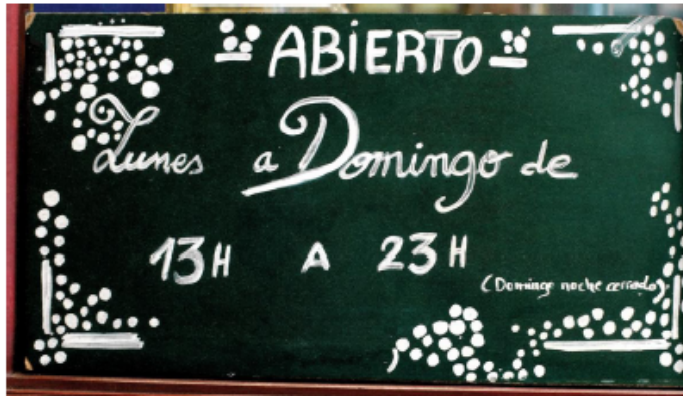 ABiERTO
Lunes a Domingo de
13H A 23H
(Domingo noche cerrado)